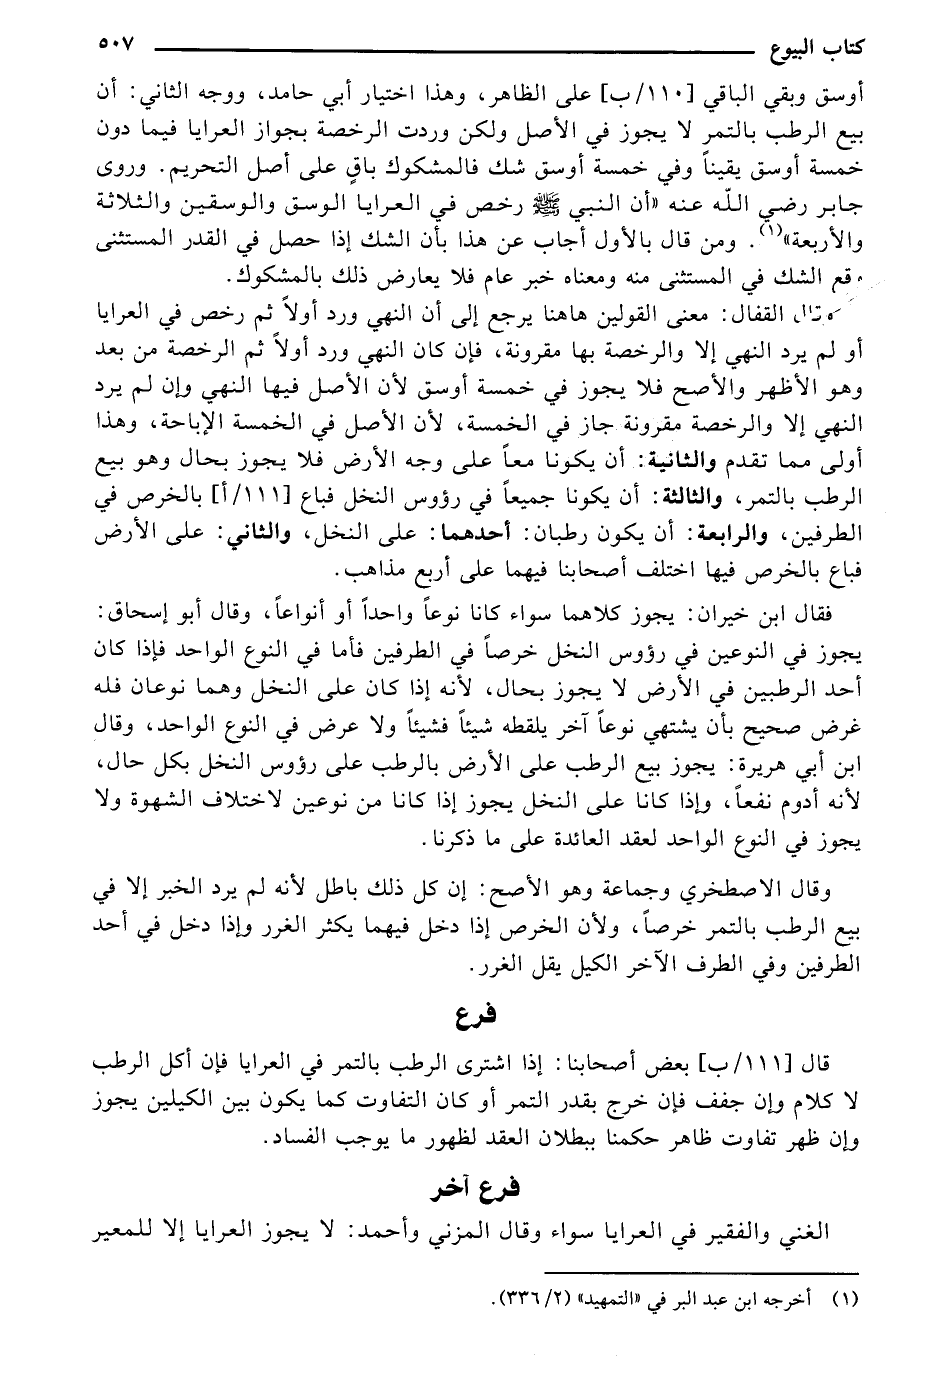 كتاب البيوع ٥٠٧
أوسق وبقي الباقي [١١٠/ ب] على الظاهر، وهذا اختيار أبي حامد، ووجه الثاني: أن
بيع الرطب بالتمر لا يجوز في الأصل ولكن وردت الرخصة بجواز العرايا فيما دون
خمسة أوسق يقيناً وفي خمسة أوسق شك فالمشكوك باقٍ على أصل التحريم. وروى
جابر رضي الله عنه «أن النبي ﷺ رخص في العرايا الوسق والوسقين والثلاثة
والأربعة»(١). ومن قال بالأول أجاب عن هذا بأن الشك إذا حصل في القدر المستثنى
قع الشك في المستثنى منه ومعناه خبر عام فلا يعارض ذلك بالمشكوك.
القفال: معنى القولين هاهنا يرجع إلى أن النهي ورد أولاً ثم رخص في العرايا
أو لم يرد النهي إلا والرخصة بها مقرونة، فإن كان النهي ورد أولاً ثم الرخصة من بعد
وهو الأظهر والأصح فلا يجوز في خمسة أوسق لأن الأصل فيها النهي وإن لم يرد
النهي إلا والرخصة مقرونة جاز في الخمسة، لأن الأصل في الخمسة الإباحة، وهذا
أولى مما تقدم والثانية: أن يكونا معاً على وجه الأرض فلا يجوز بحال وهو بيع
الرطب بالتمر، والثالثة: أن يكونا جميعاً في رؤوس النخل فباع [١١١/ أ] بالخرص في
الطرفين، والرابعة: أن يكون رطبان: أحدهما: على النخل، والثاني: على الأرض
فباع بالخرص فيها اختلف أصحابنا فيهما على أربع مذاهب.
فقال ابن خيران: يجوز كلاهما سواء كانا نوعاً واحداً أو أنواعاً، وقال أبو إسحاق:
يجوز في النوعين في رؤوس النخل خرصاً في الطرفين فأما في النوع الواحد فإذا كان
أحد الرطبين في الأرض لا يجوز بحال، لأنه إذا كان على النخل وهما نوعان فله
غرض صحيح بأن يشتهي نوعاً آخر يلقطه شيئاً فشيئاً ولا عرض في النوع الواحد، وقال
ابن أبي هريرة: يجوز بيع الرطب على الأرض بالرطب على رؤوس النخل بكل حال،
لأنه أدوم نفعاً، وإذا كانا على النخل يجوز إذا كانا من نوعين لاختلاف الشهوة ولا
يجوز في النوع الواحد لعقد العائدة على ما ذكرنا.
وقال الاصطخري وجماعة وهو الأصح: إن كل ذلك باطل لأنه لم يرد الخبر إلا في
بيع الرطب بالتمر خرصاً، ولأن الخرص إذا دخل فيهما يكثر الغرر وإذا دخل في أحد
الطرفين وفي الطرف الآخر الكيل يقل الغرر.
فرع
قال [١١١/ ب] بعض أصحابنا: إذا اشترى الرطب بالتمر في العرايا فإن أكل الرطب
لا كلام وإن جفف فإن خرج بقدر التمر أو كان التفاوت كما يكون بين الكيلين يجوز
وإن ظهر تفاوت ظاهر حكمنا ببطلان العقد لظهور ما يوجب الفساد.
فرع آخر
الغني والفقير في العرايا سواء وقال المزني وأحمد: لا يجوز العرايا إلا للمعير
(١) أخرجه ابن عبد البر في «التمهيد» (٢/ ٣٣٦).